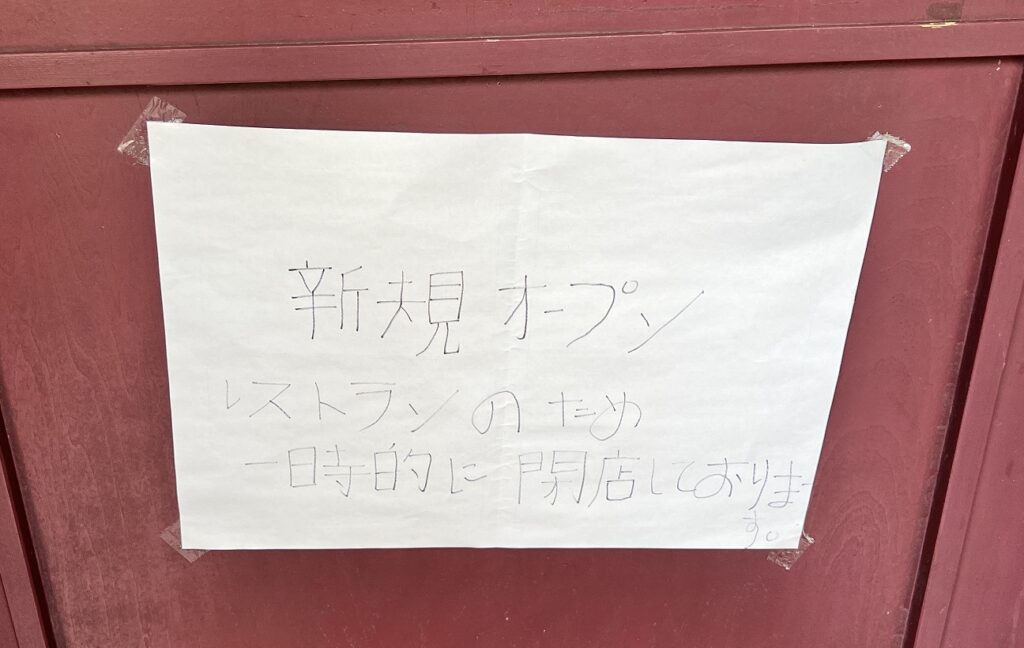 新規オープン
レストランのため
一時的に閉店しておりま
す。